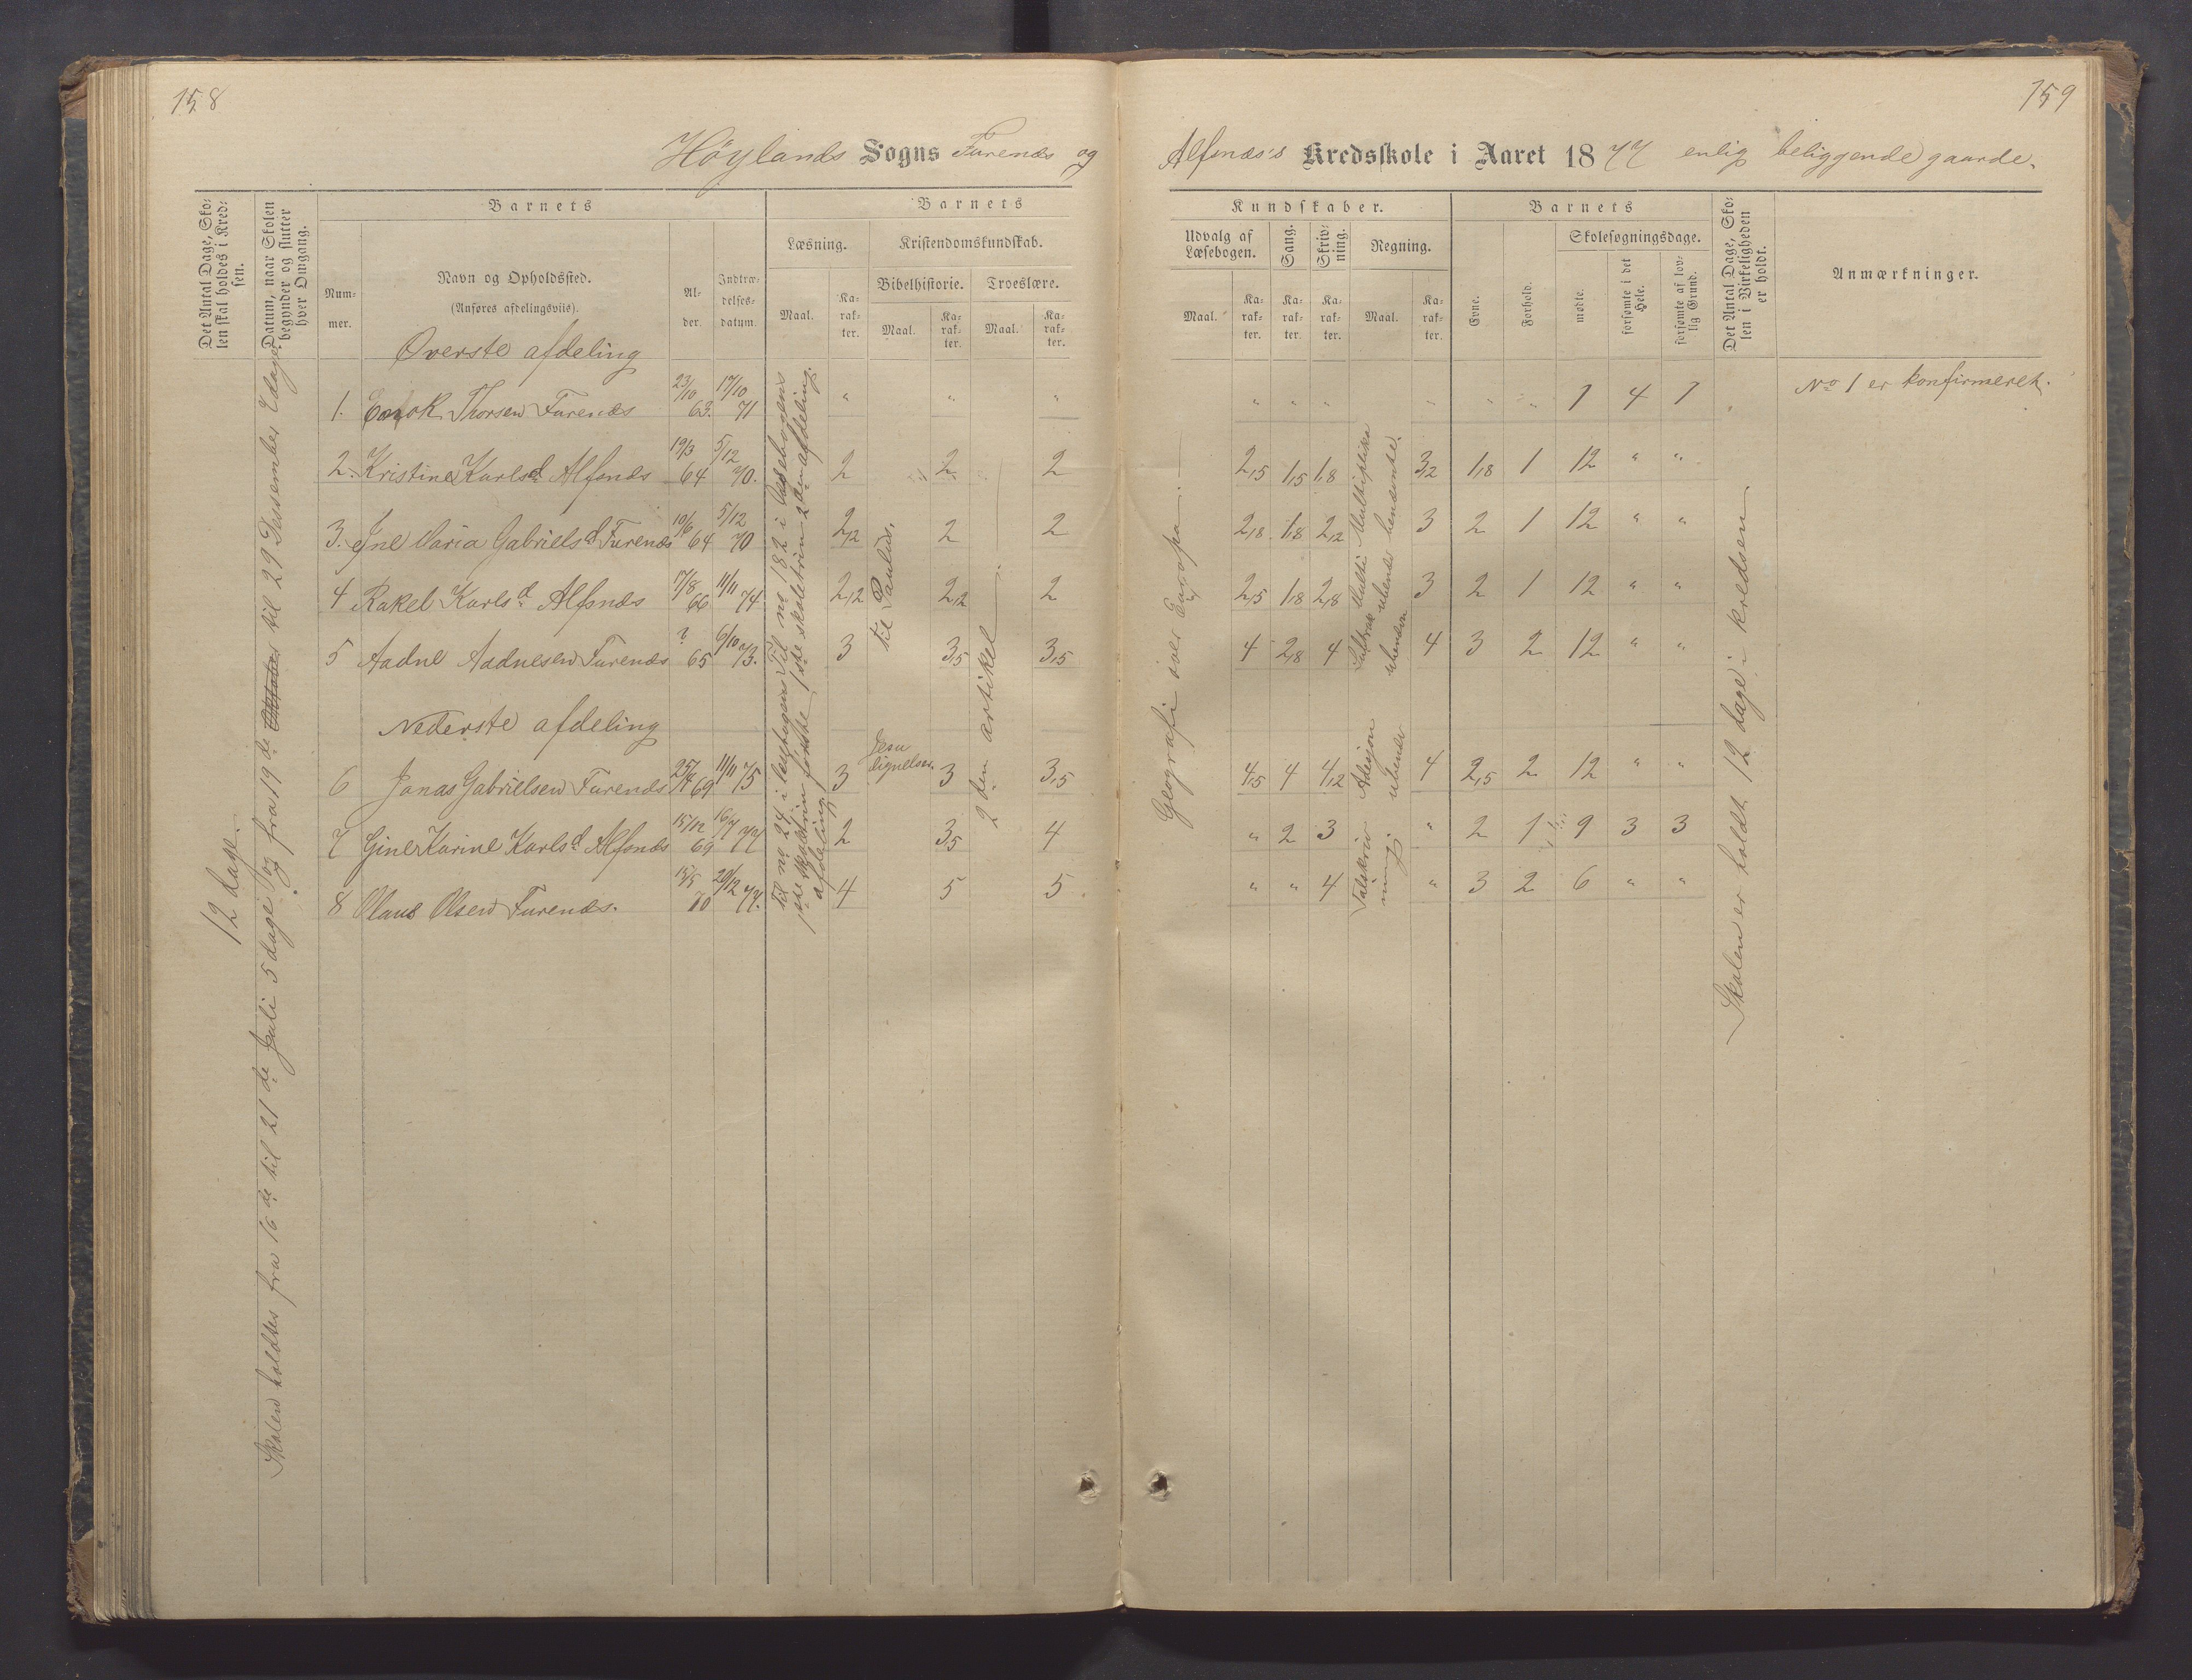 158
159
Höylands Sogns Furenæs og Alfsnæs's Kredsskole i Aaret 1877 enlig beliggende gaarde.
Det Antal Dage, Skolen skal holdes i Kredsen.
Datum, naar Skolen begynder og slutter hver Omgang.
Barnets
Nummer.
Navn og Opholdssted.
(Anføres afdelingsviis).
Alder.
Indtrædelsesdatum.
Barnets
Læsning.
Maal.
Karakter.
Kristendomskundskab.
Bibelhistorie.
Troeslære.
Maal.
Karakter.
Maal.
Karakter.
Kundskaber.
Udvalg af Læsebogen.
Sang.
Skrivning.
Regning.
Maal.
Karakter.
Karakter.
Karakter.
Maal.
Karakter.
Barnets
Evne.
Forhold.
Skolesøgningsdage.
mødte.
forsømte i det Hele.
forsømte af lovlig Grund.
Det Antal Dage, Skolen i Virkeligheden er holdt.
Anmærkninger.
12 dage.
Skolen holdtes fra 16de til 21de Juli 5 dage og fra 19de til 29 Dessember 7 dage
Øverste afdeling
1. Enok Thorsen Furenæs 23/10 63. 17/10 71 " " " " " " " " " 1 4 1 No 1 er konfirmeret.
2. Kristine Karlsd Alfsnæs 19/3 64 5/12 70. 2 2 2 2,5 1,5 1,8 3,2 1,8 1 12 " "
3. Ine Maria Gabrielsd Furenæs 10/6 64 5/12 70 2,2 2 2 2,8 1,8 2,2 3 2 1 12 " "
4 Rakel Karlsd Alfsnæs 17/8 66 11/11 74 2,2 2,2 2 2,5 1,8 2,8 3 2 1 12 " "
5 Aadne Aadnesen Furenæs ? 65 6/10 73. 3 3,5 3,5 4 2,8 4 4 3 2 12 " "
Nederste afdeling
6 Jonas Gabrielsen Furenæs 25/4 69 11/11 75 3 3 3,5 4,5 4 4,2 4 2,5 2 12 " "
7 Gine Karine Karlsd Alfsnæs 15/12 69 16/7 77 2 3,5 4 " 2 3 " 2 1 9 3 3
8 Olaus Olsen Furenæs. 15/5 70 29/12 77. 4 5 5 " " 4 " 3 2 6 " "
Til no 182 i læsebogens
første skoletrin 2den afdeling.
Til no 24 i læsebogens
afdeling
til Paulus.
Jesu
lignelser.
2 den artikel
Geografi over Europa.
Adisjon
Talskriv
ning.
Skolen er holdt 12 dage i kredsen.